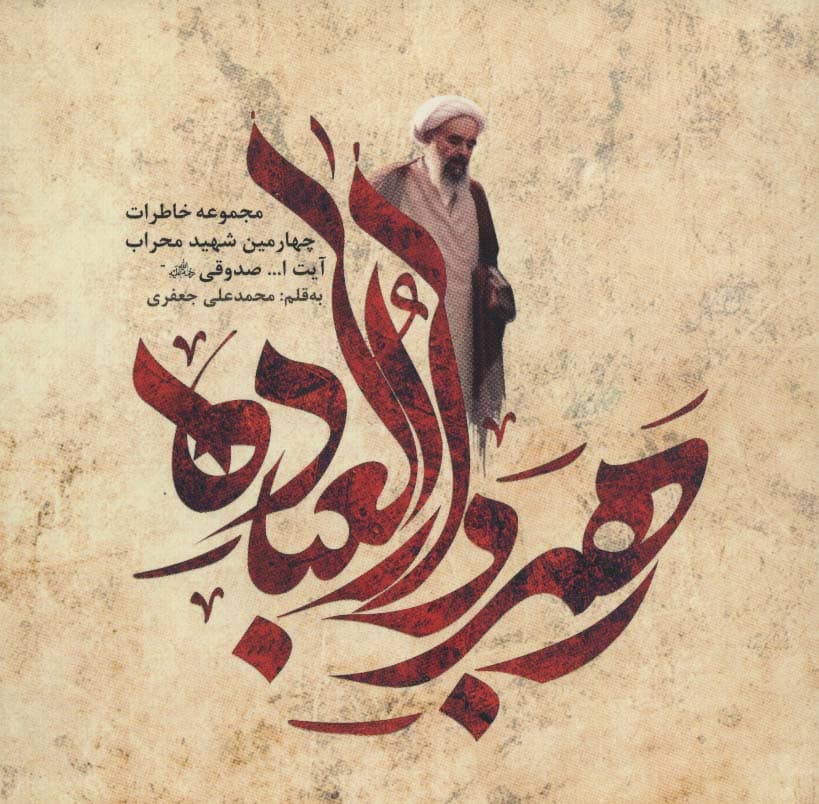 مجموعه خاطرات
چهارمین شهید محراب
آیت ا... صدوقی
به‌قلم: محمدعلی جعفری
رهبر دارالعباده